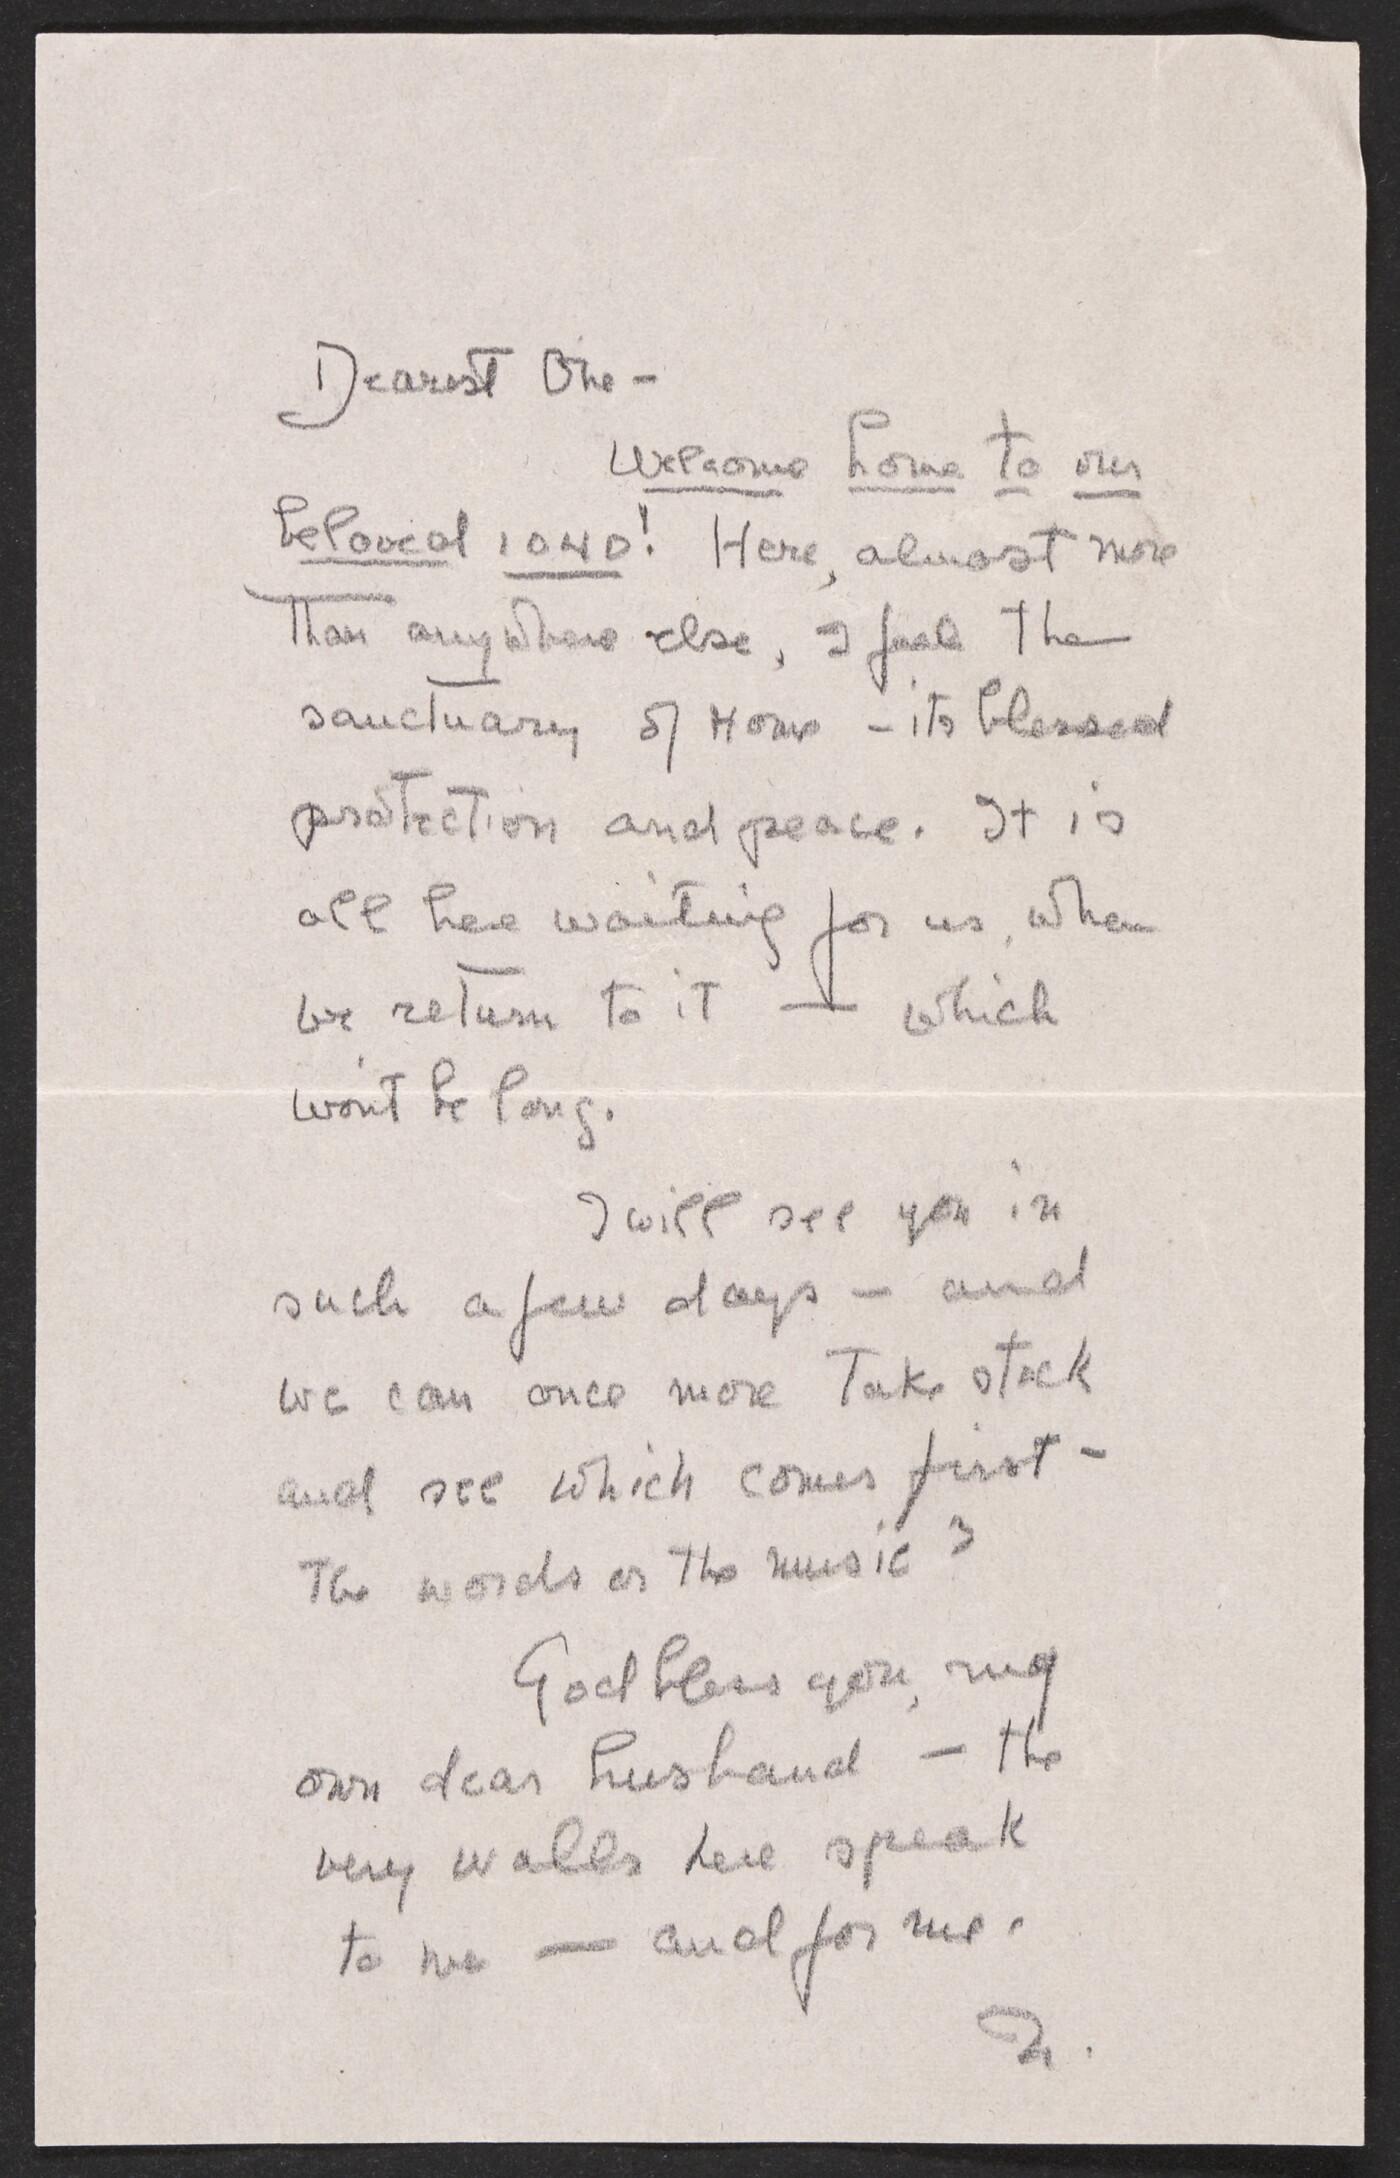 Dearest One –
Welcome home to our
beloved 1040! Here, almost more
than anywhere else, I feel the
sanctuary of Home – its blessed
protection and peace. It is
all here waiting for us, when
we return to it — which
won't be long.
I will see you in
such a few days – and
we can once more take stock
and see which comes first –
the words or the music?
God bless you, my
own dear husband – the
very walls here speak
to me — and for me.